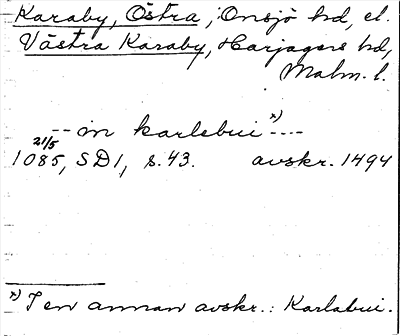 Karaby, Östra, Onsjö hd, el.
Västra Karaby, Harjagers hd,
Malm. l.
-- in karlebui x) ----
21/5
1085, SD1, s. 43. avskr. 1494
x) I en annan avskr.: Karlabui.